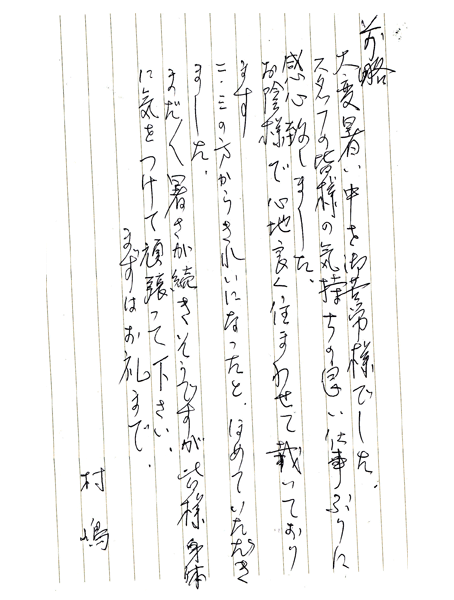 前略
大変暑い中を御苦労様でした。
スタッフの皆様の気持ちの良い仕事ぶりに
感心致しました。
お陰様で心地良く住まわせて載いており
ます
二・三の方からきれいになったと、ほめていただき
ました。
まだ〱暑さが続きそうですが皆様身体
に気をつけて頑張って下さい。
まずはお礼まで。
村嶋